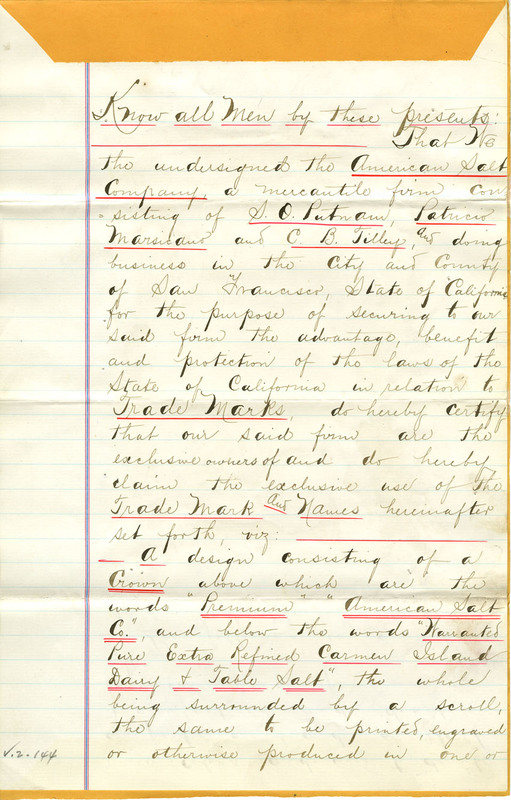 Know all Men by these presents:
That We
the undersigned the American Salt
Company, a mercantile firm con
-sisting of S. O. Putnam, Patricio
Marsicano and C. B. Tilley, and doing
business in the City and County
of San Francisco, State of California
for the purpose of securing to our
said firm the advantage, benefit
and protection of the laws of the
State of California in relation to
Trade Marks, do hereby certify
that our said firm are the
exclusive owners of and do hereby
claim the exclusive use of the
Trade Mark and Names hereinafter
set forth, viz:
A design consisting of a
Crown above which are the
words "Premium" "American Salt
Co.", and below the words "Warranted
Pure Extra Refined Carmen Island
Dairy & Table Salt", the whole
being surrounded by a scroll,
the same to be printed, engraved
or otherwise produced in one or
v.2.144